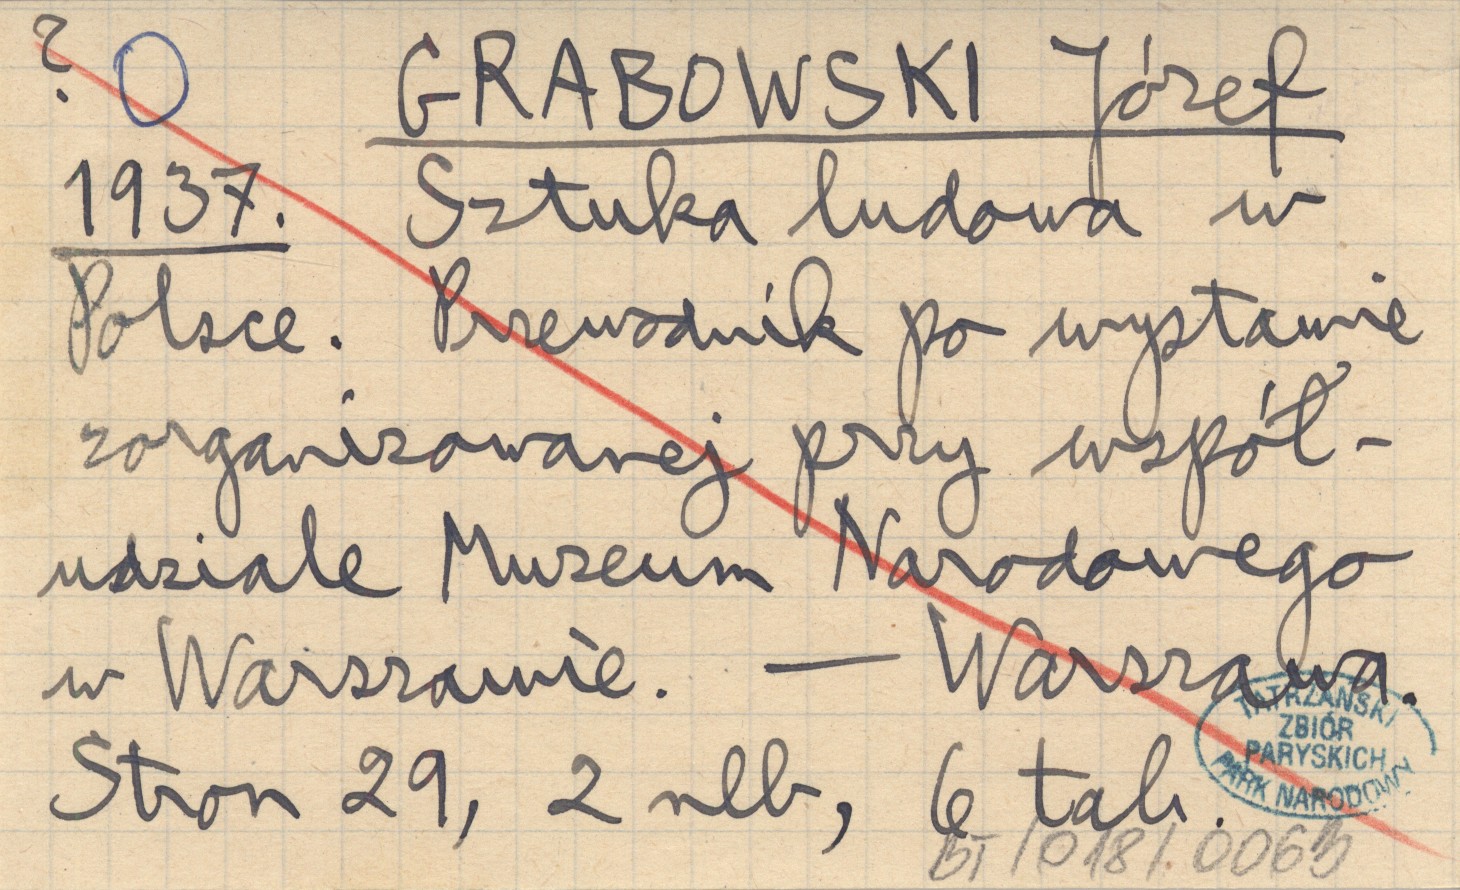 ? O GRABOWSKI Józef
1937. Sztuka ludowa w
Polsce. Przewodnik po wystawie
zorganizowanej przy współ-
udziale Muzeum Narodowego
w Warszawie. — Warszawa.
Stron 29, 2 nlb, 6 tab.
TATRZAŃSKI
ZBIÓR
PARYSKICH
PARK NARODOWY
BT /018/ 0063